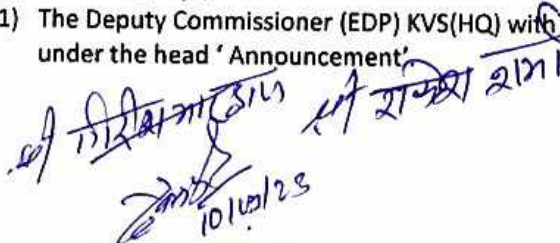 1) The Deputy Commissioner (EDP) KVS(HQ) with
under the head ‘ Announcement’
श्री श्री राकेश शर्मा